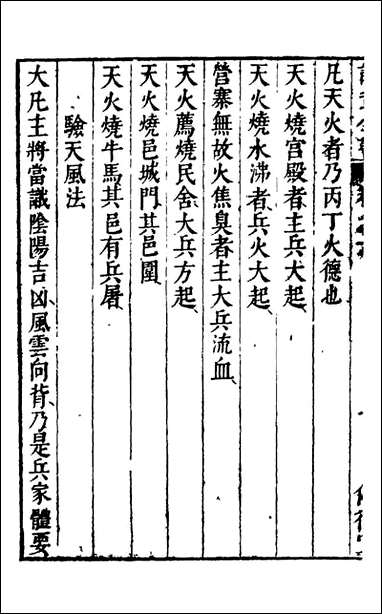 凡天火者乃丙丁火德也
天火燒宮殿者主兵大起
天火燒水沸者兵火大起
營寨無故火焦臭者主大兵流血
天火薦燒民舍大兵方起
天火燒邑城門其邑圍
天火燒牛馬其邑有兵屠
驗天風法
大凡主將當識陰陽吉凶風雲向背乃是兵家體要